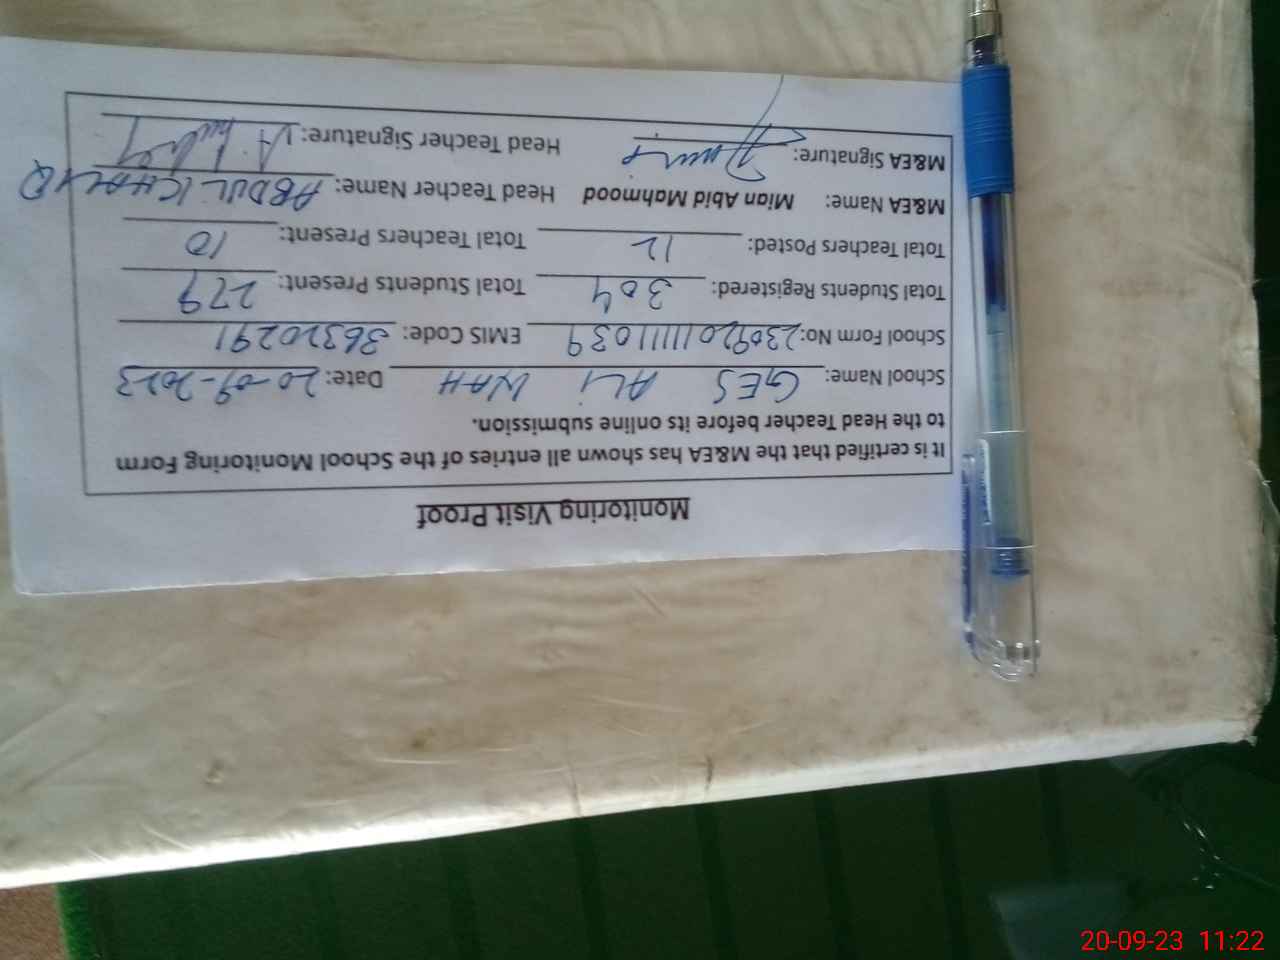 Monitoring Visit Proof
It is certified that the M&EA has shown all entries of the School Monitoring Form
to the Head Teacher before its online submission.
School Name: GES ALi WAH Date: 20-09-2023
School Form No: 2309201111039 EMIS Code: 36320291
Total Students Registered: 304 Total Students Present: 279
Total Teachers Posted: 12 Total Teachers Present: 10
M&EA Name: Mian Abid Mahmood Head Teacher Name: ABDUL KHALIQ
M&EA Signature: Head Teacher Signature:
20-09-23 11:22